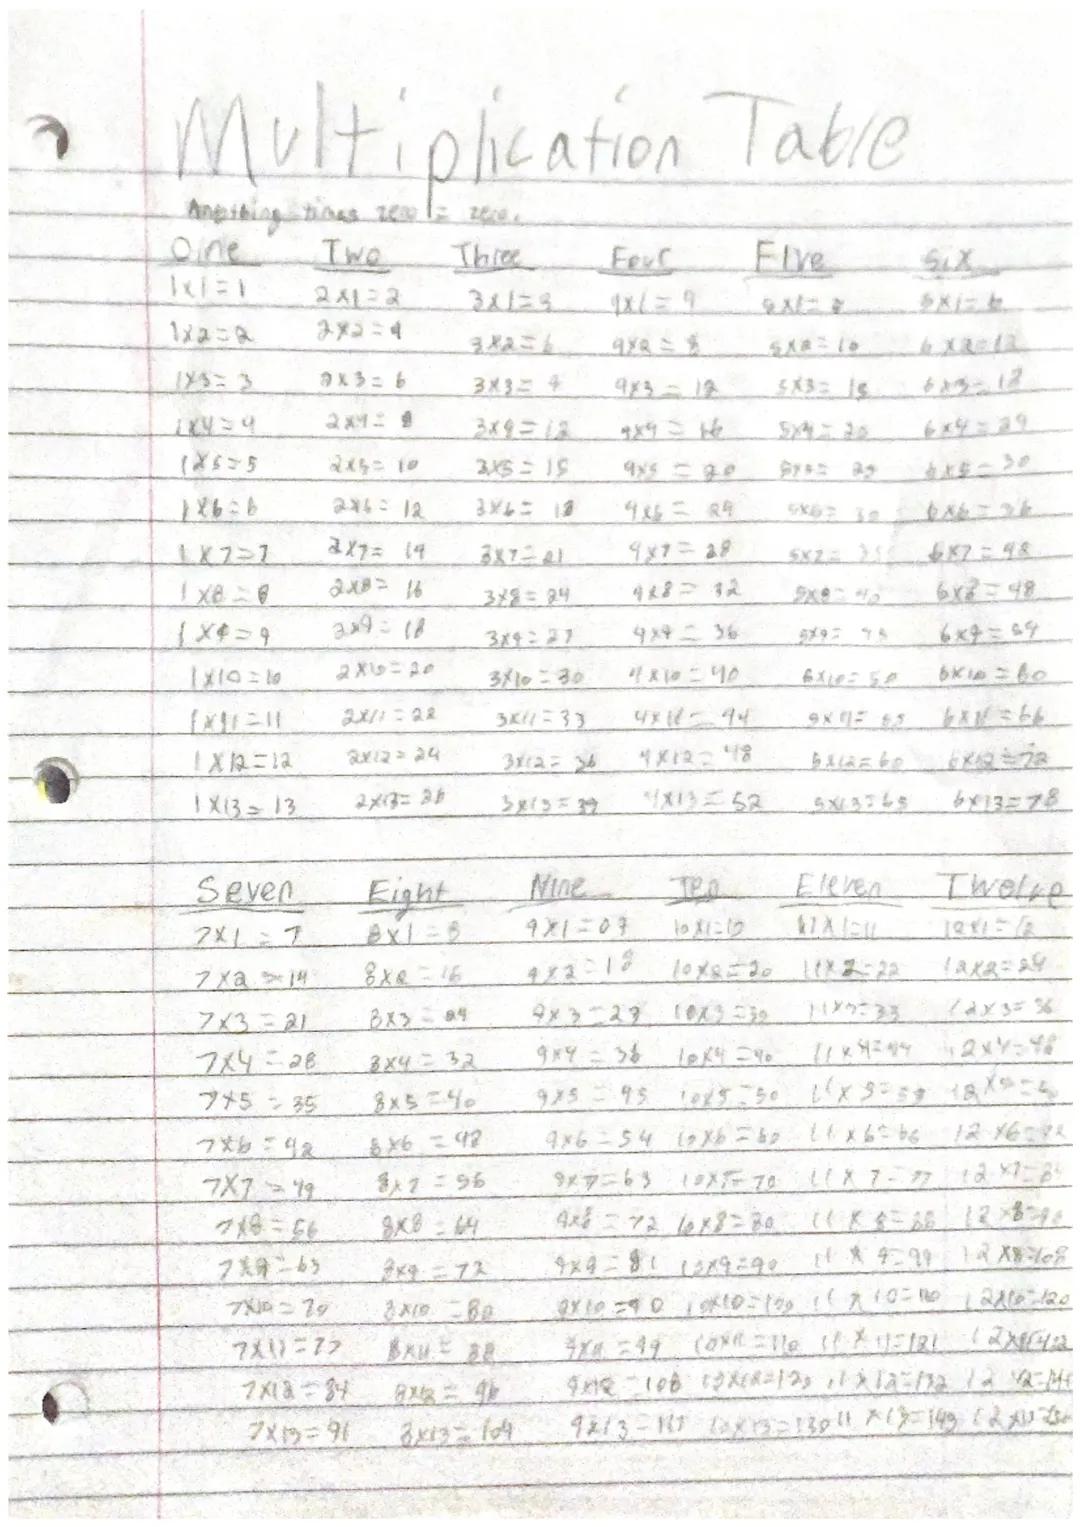 Multiplication Table
Anything times zero = zero.
One Two Three Four Five Six
1x1=1 2x1=2 3x1=3 4x1=4 5x1=5 6x1=6
1x2=2 2x2=4 3x2=6 4x2=8 5x2=10 6x2=12
1x3=3 2x3=6 3x3=9 4x3=12 5x3=15 6x3=18
1x4=4 2x4=8 3x4=12 4x4=16 5x4=20 6x4=24
1x5=5 2x5=10 3x5=15 4x5=20 5x5=25 6x5=30
1x6=6 2x6=12 3x6=18 4x6=24 5x6=30 6x6=36
1x7=7 2x7=14 3x7=21 4x7=28 5x7=35 6x7=48
1x8=8 2x8=16 3x8=24 4x8=32 5x8=40 6x8=48
1x9=9 2x9=18 3x9=27 4x9=36 5x9=45 6x9=54
1x10=10 2x10=20 3x10=30 4x10=40 5x10=50 6x10=60
1x11=11 2x11=22 3x11=33 4x11=44 5x11=55 6x11=66
1x12=12 2x12=24 3x12=36 4x12=48 5x12=60 6x12=72
1x13=13 2x13=26 3x13=39 4x13=52 5x13=65 6x13=78
Seven Eight Nine Ten Eleven Twelve
7x1=7 8x1=8 9x1=09 10x1=10 11x1=11 12x1=12
7x2=14 8x2=16 9x2=18 10x2=20 11x2=22 12x2=24
7x3=21 8x3=24 9x3=27 10x3=30 11x3=33 12x3=36
7x4=28 8x4=32 9x4=36 10x4=40 11x4=44 12x4=48
7x5=35 8x5=40 9x5=45 10x5=50 11x5=55
7x6=42 8x6=48 9x6=54 10x6=60 11x6=66 12x6=72
7x7=49 8x7=56 9x7=63 10x7=70 11x7=77
7x8=56 8x8=64 9x8=72 10x8=80 11x8=88
7x9=63 8x9=72 9x9=81 10x9=90 11x9=99 12x8=108
7x10=70 8x10=80 9x10=90 10x10=100 11x10=110 12x10=120
7x11=77 8x11=88 9x11=99 10x11=110 11x11=121
7x12=84 8x12=96 9x12=108 10x12=120 11x12=132
7x13=91 8x13=104 9x13=117 10x13=130 11x13=143